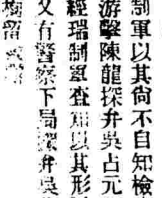 制軍以其尙不自知檢
游擊陳龍探弁吳占元
經瑞制軍查知以其形
又有警察下局探弁吳
拘留